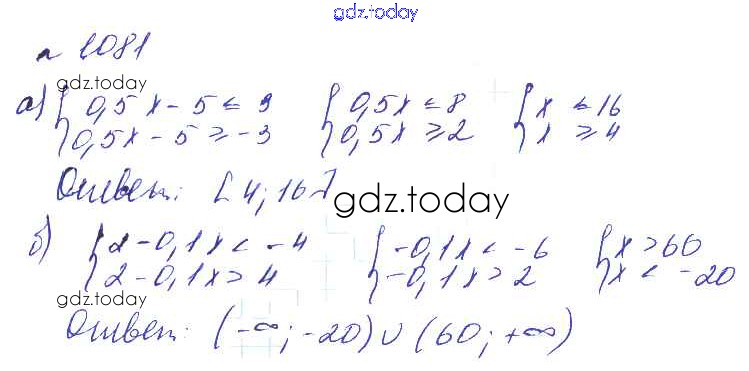 gdz.today
№ 1081
gdz.today
а) { 0,5x - 5 ≤ 3 { 0,5x ≤ 8 { x ≤ 16
0,5x - 5 ≥ -3 0,5x ≥ 2 x ≥ 4
Ответ: [4; 16]
gdz.today
б) { 2 - 0,1x < -4 { -0,1x < -6 { x > 60
2 - 0,1x > 4 -0,1x > 2 x < -20
gdz.today
Ответ: (-∞; -20) ∪ (60; +∞)